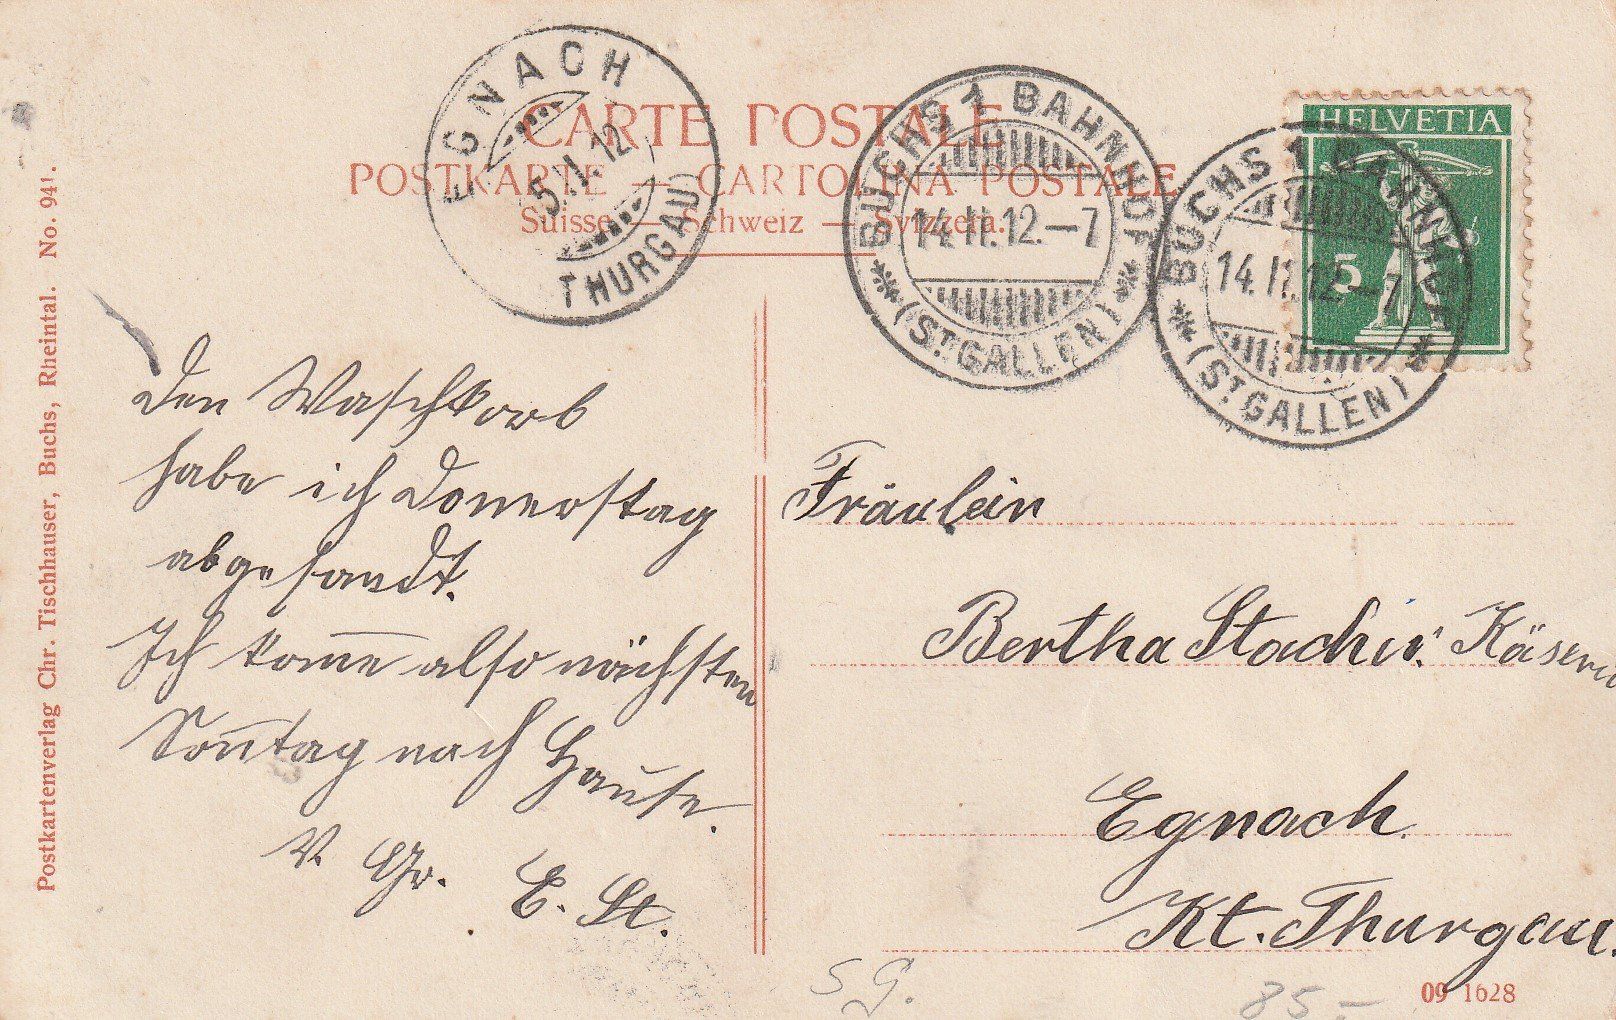 CARTE POSTALE
POSTKARTE — CARTOLINA POSTALE
Suisse — Schweiz — Svizzera.
EGNACH
(THURGAU)
BUCHS 1 BAHNHOF
14.II.12.–7
(ST. GALLEN)
BUCHS 1 BAHNHOF
14.II.12.–7
(ST. GALLEN)
HELVETIA
5
Postkartenverlag Chr. Tischhauser, Buchs, Rheintal. No. 941.
Den Waschkorb
habe ich Donnerstag
abgesandt.
Ich kom̅e also nächsten
Son̅tag nach Hause.
V. Gr. E. St.
Fräulein
Bertha Käserei
Egnach.
Kt. Thurgau.
S G.
85.–
09 1628